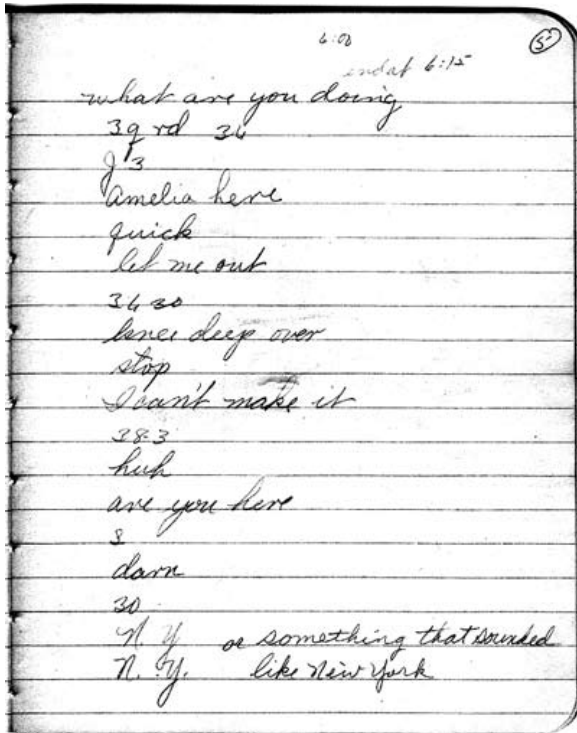 6:00
5
end at 6:15
what are you doing
39 rd 36
J 3
amelia here
quick
let me out
36 30
knee deep over
stop
I can't make it
38-3
huh
are you here
3
darn
30
N.Y. or something that sounded
N.Y. like New York